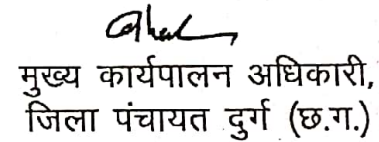 मुख्य कार्यपालन अधिकारी,
जिला पंचायत दुर्ग (छ.ग.)